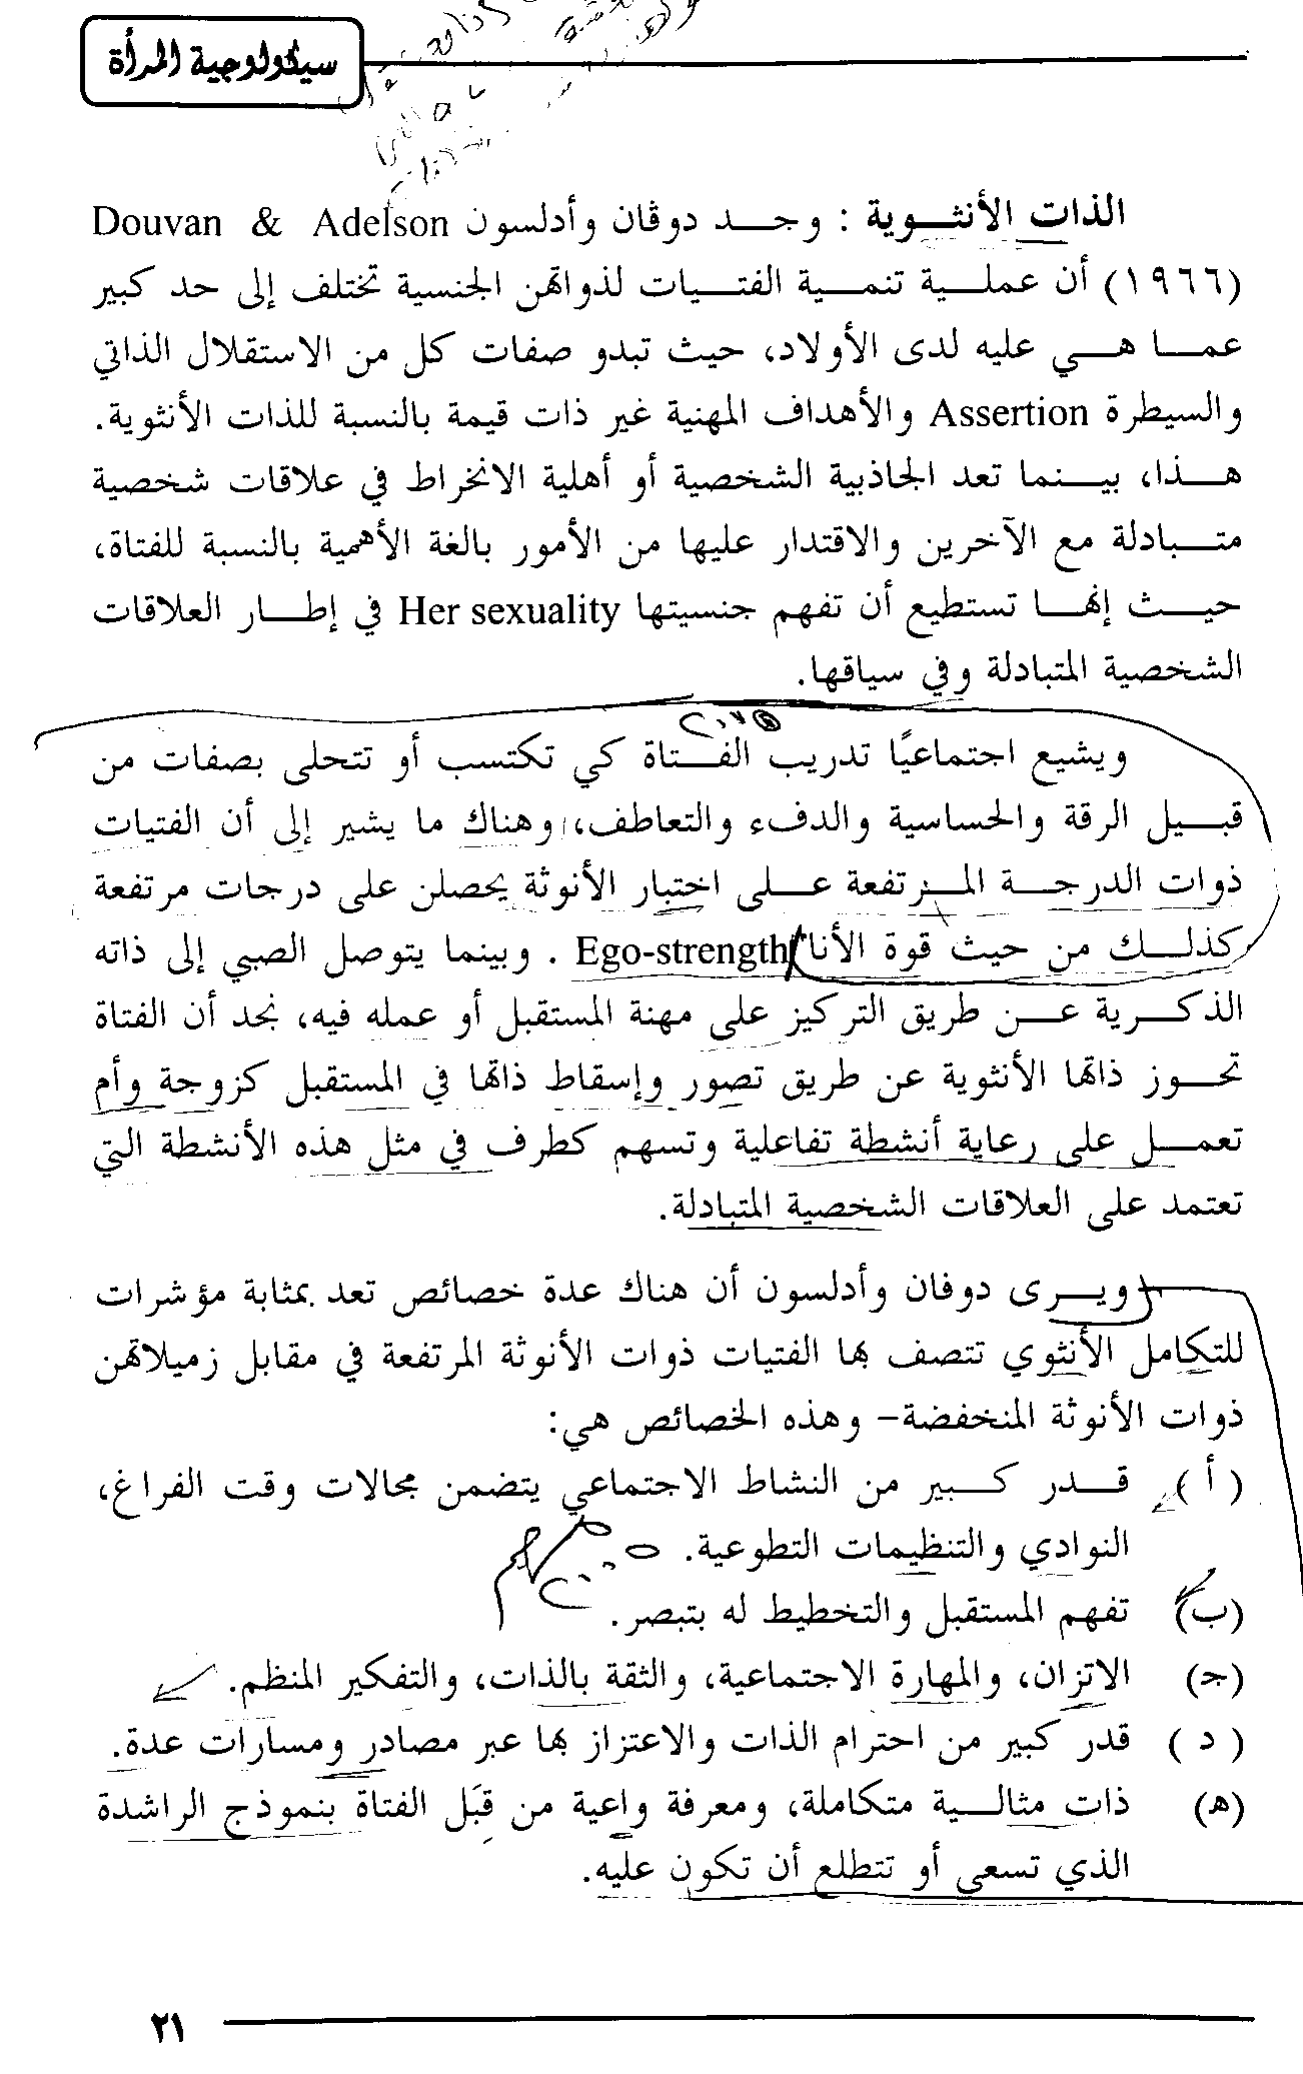 سيكولوجية المرأة
الذات الأنثوية : وجد دوڤان وأدلسون Douvan & Adelson
(١٩٦٦) أن عملية تنمية الفتيات لذواتهن الجنسية تختلف إلى حد كبير
عما هي عليه لدى الأولاد، حيث تبدو صفات كل من الاستقلال الذاتي
والسيطرة Assertion والأهداف المهنية غير ذات قيمة بالنسبة للذات الأنثوية.
هذا، بينما تعد الجاذبية الشخصية أو أهلية الانخراط في علاقات شخصية
متبادلة مع الآخرين والاقتدار عليها من الأمور بالغة الأهمية بالنسبة للفتاة،
حيث إنها تستطيع أن تفهم جنسيتها Her sexuality في إطار العلاقات
الشخصية المتبادلة وفي سياقها.
ويشيع اجتماعيًا تدريب الفتاة كي تكتسب أو تتحلى بصفات من
قبيل الرقة والحساسية والدفء والتعاطف، وهناك ما يشير إلى أن الفتيات
ذوات الدرجة المرتفعة على اختبار الأنوثة يحصلن على درجات مرتفعة
كذلك من حيث قوة الأنا Ego-strength . وبينما يتوصل الصبي إلى ذاته
الذكرية عن طريق التركيز على مهنة المستقبل أو عمله فيه، نجد أن الفتاة
تحوز ذاتها الأنثوية عن طريق تصور وإسقاط ذاتها في المستقبل كزوجة وأم
تعمل على رعاية أنشطة تفاعلية وتسهم كطرف في مثل هذه الأنشطة التي
تعتمد على العلاقات الشخصية المتبادلة.
ويرى دوفان وأدلسون أن هناك عدة خصائص تعد بمثابة مؤشرات
للتكامل الأنثوي تتصف بها الفتيات ذوات الأنوثة المرتفعة في مقابل زميلاتهن
ذوات الأنوثة المنخفضة– وهذه الخصائص هي:
( أ ) قدر كبير من النشاط الاجتماعي يتضمن مجالات وقت الفراغ،
النوادي والتنظيمات التطوعية.
(ب) تفهم المستقبل والتخطيط له بتبصر.
(جـ) الاتزان، والمهارة الاجتماعية، والثقة بالذات، والتفكير المنظم.
( د ) قدر كبير من احترام الذات والاعتزاز بها عبر مصادر ومسارات عدة.
(هـ) ذات مثالية متكاملة، ومعرفة واعية من قِبَل الفتاة بنموذج الراشدة
الذي تسعى أو تتطلع أن تكون عليه.
٢١